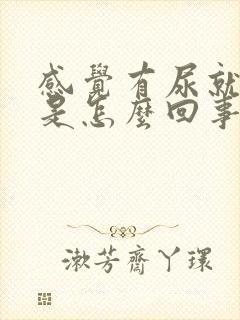 感覺有尿就
是怎麼回事
漱芳齋丫環